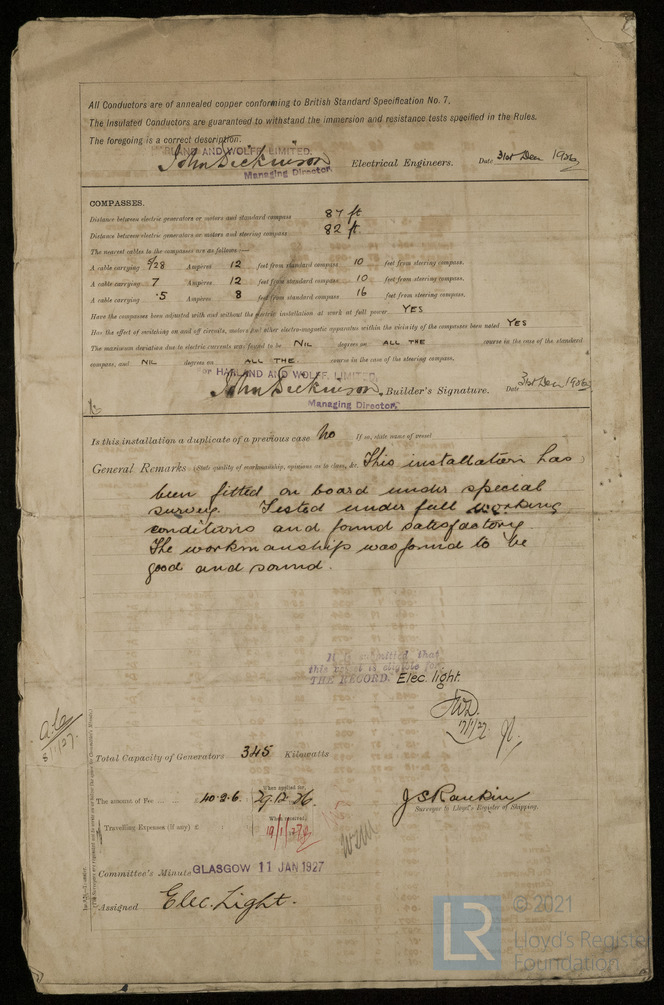 All Conductors are of annealed copper conforming to British Standard Specification No. 7.
The Insulated Conductors are guaranteed to withstand the immersion and resistance tests specified in the Rules.
The foregoing is a correct description.
HARLAND AND WOLFF, LIMITED.
John Dickinson Electrical Engineers. Date 31st Dec 1926
Managing Director.
COMPASSES.
Distance between electric generators or motors and standard compass 87 ft
Distance between electric generators or motors and steering compass 82 ft
The nearest cables to the compasses are as follows:—
A cable carrying 5/28 Amperes 12 feet from standard compass 10 feet from steering compass.
A cable carrying 7 Amperes 12 feet from standard compass 10 feet from steering compass.
A cable carrying .5 Amperes 8 feet from standard compass 16 feet from steering compass.
Have the compasses been adjusted with and without the electric installation at work at full power YES
Has the effect of switching on and off circuits, motors and other electro-magnetic apparatus within the vicinity of the compasses been noted YES
The maximum deviation due to electric currents was found to be NIL degrees on ALL THE course in the case of the standard
compass, and NIL degrees on ALL THE course in the case of the steering compass.
For HARLAND AND WOLFF, LIMITED.
John Dickinson. Builder's Signature. Date 31st Dec 1926
Managing Director.
Is this installation a duplicate of a previous case No If so, state name of vessel
General Remarks (State quality of workmanship, opinions as to class, &c. This installation has
been fitted on board under special
survey. Tested under full working
conditions and found satisfactory.
The workmanship was found to be
good and sound.
It is submitted that
this vessel is eligible for
THE RECORD. Elec. light.
17/1/27.
5/1/27.
Total Capacity of Generators 345 Kilowatts
The amount of Fee £ 40.2.6. When applied for, 29.12.26.
J S Rankin
Surveyor to Lloyd's Register of Shipping.
Travelling Expenses (if any) £ When received, 19/1/27
Committee's Minute GLASGOW 11 JAN 1927
Assigned Elec. Light.
LR © 2021
Lloyd's Register
Foundation